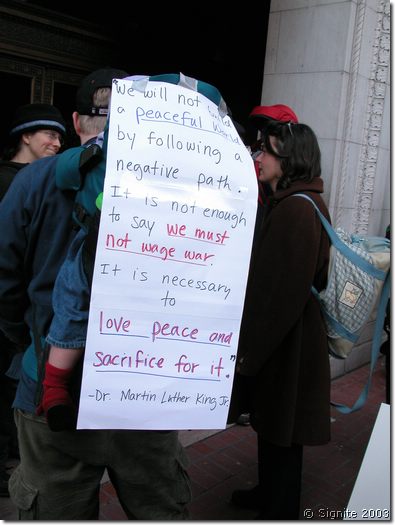 "We will not build
a peaceful world
by following a
negative path.
It is not enough
to say we must
not wage war.
It is necessary
to
love peace and
sacrifice for it."
-Dr. Martin Luther King Jr.
© Signite 2003